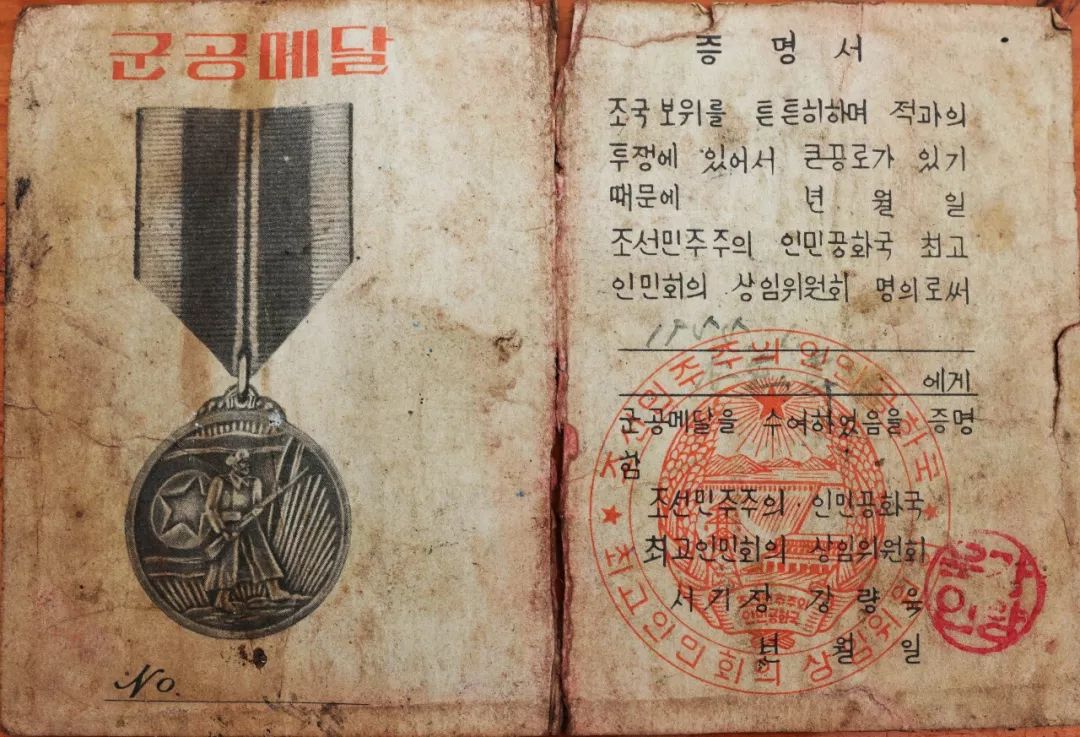 군공메달
No.
증 명 서
조국보위를 튼튼히하며 적과의
투쟁에 있어서 큰공로가 있기
때문에 년 월 일
조선민주주의 인민공화국 최고
인민회의 상임위원회 명의로써
에게
군공메달을 수여하였음을 증명
함
조선민주주의 인민공화국
최고인민회의 상임위원회
서기장 강량욱
년 월 일
조선민주주의인민공화국
최고인민회의 상임위원회